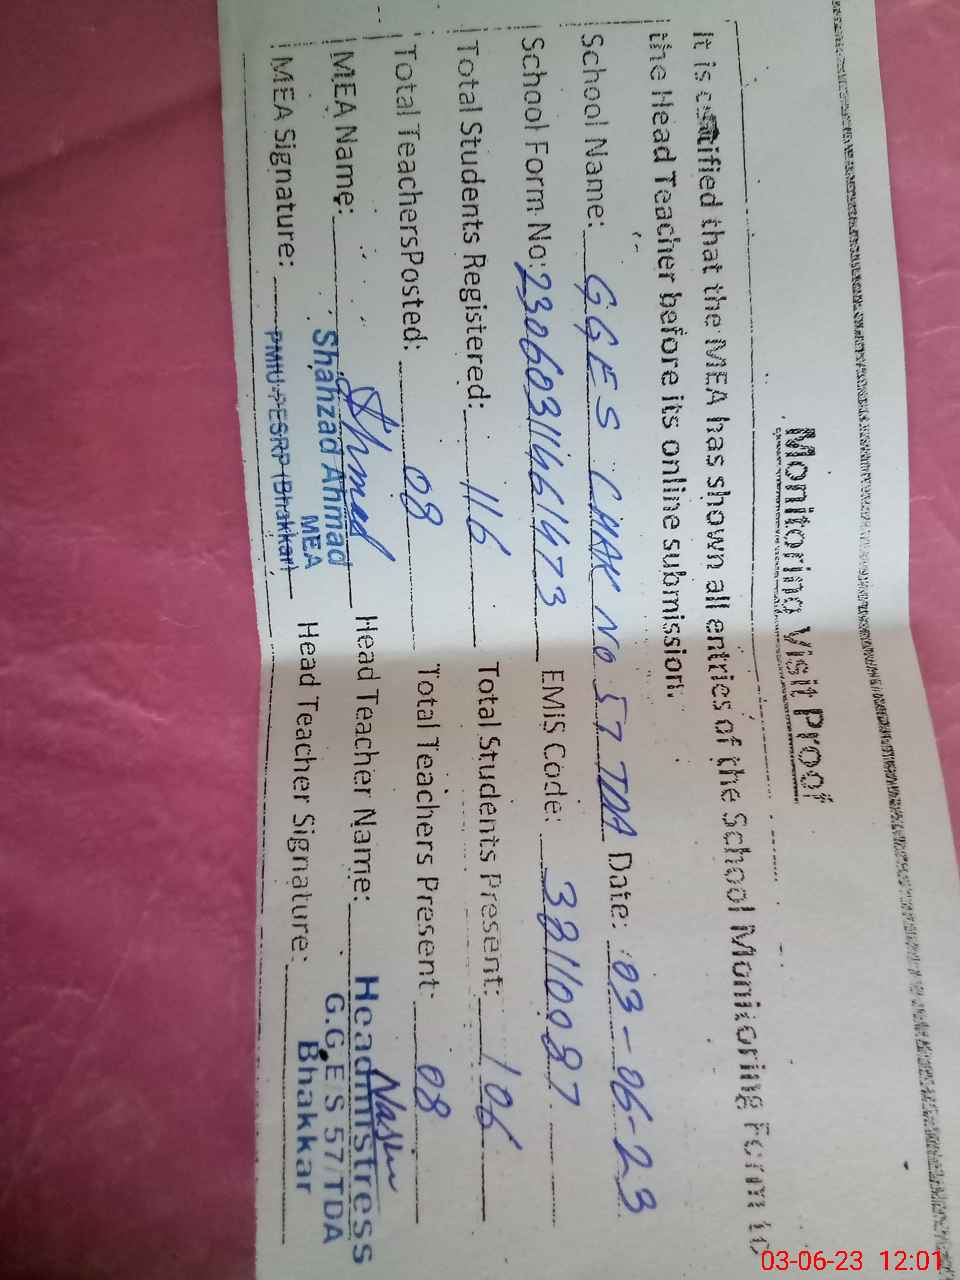 Monitoring Visit Proof
It is certified that the MEA has shown all entries of the School Monitoring Form to
the Head Teacher before its online submission.
School Name: GGES CHAK No 57 TDA Date: 03-06-23
School Form No: 23060311461473 EMIS Code: 38110087
Total Students Registered: 116 Total Students Present: 106
Total Teachers Posted: 08 Total Teachers Present: 08
MEA Name: Ahmad Head Teacher Name:
Shahzad Ahmad
MEA
Headmistress
G.G.E/S 57/TDA
Bhakkar
MEA Signature: PMIU-PESRP (Bhakkar) Head Teacher Signature:
03-06-23 12:01